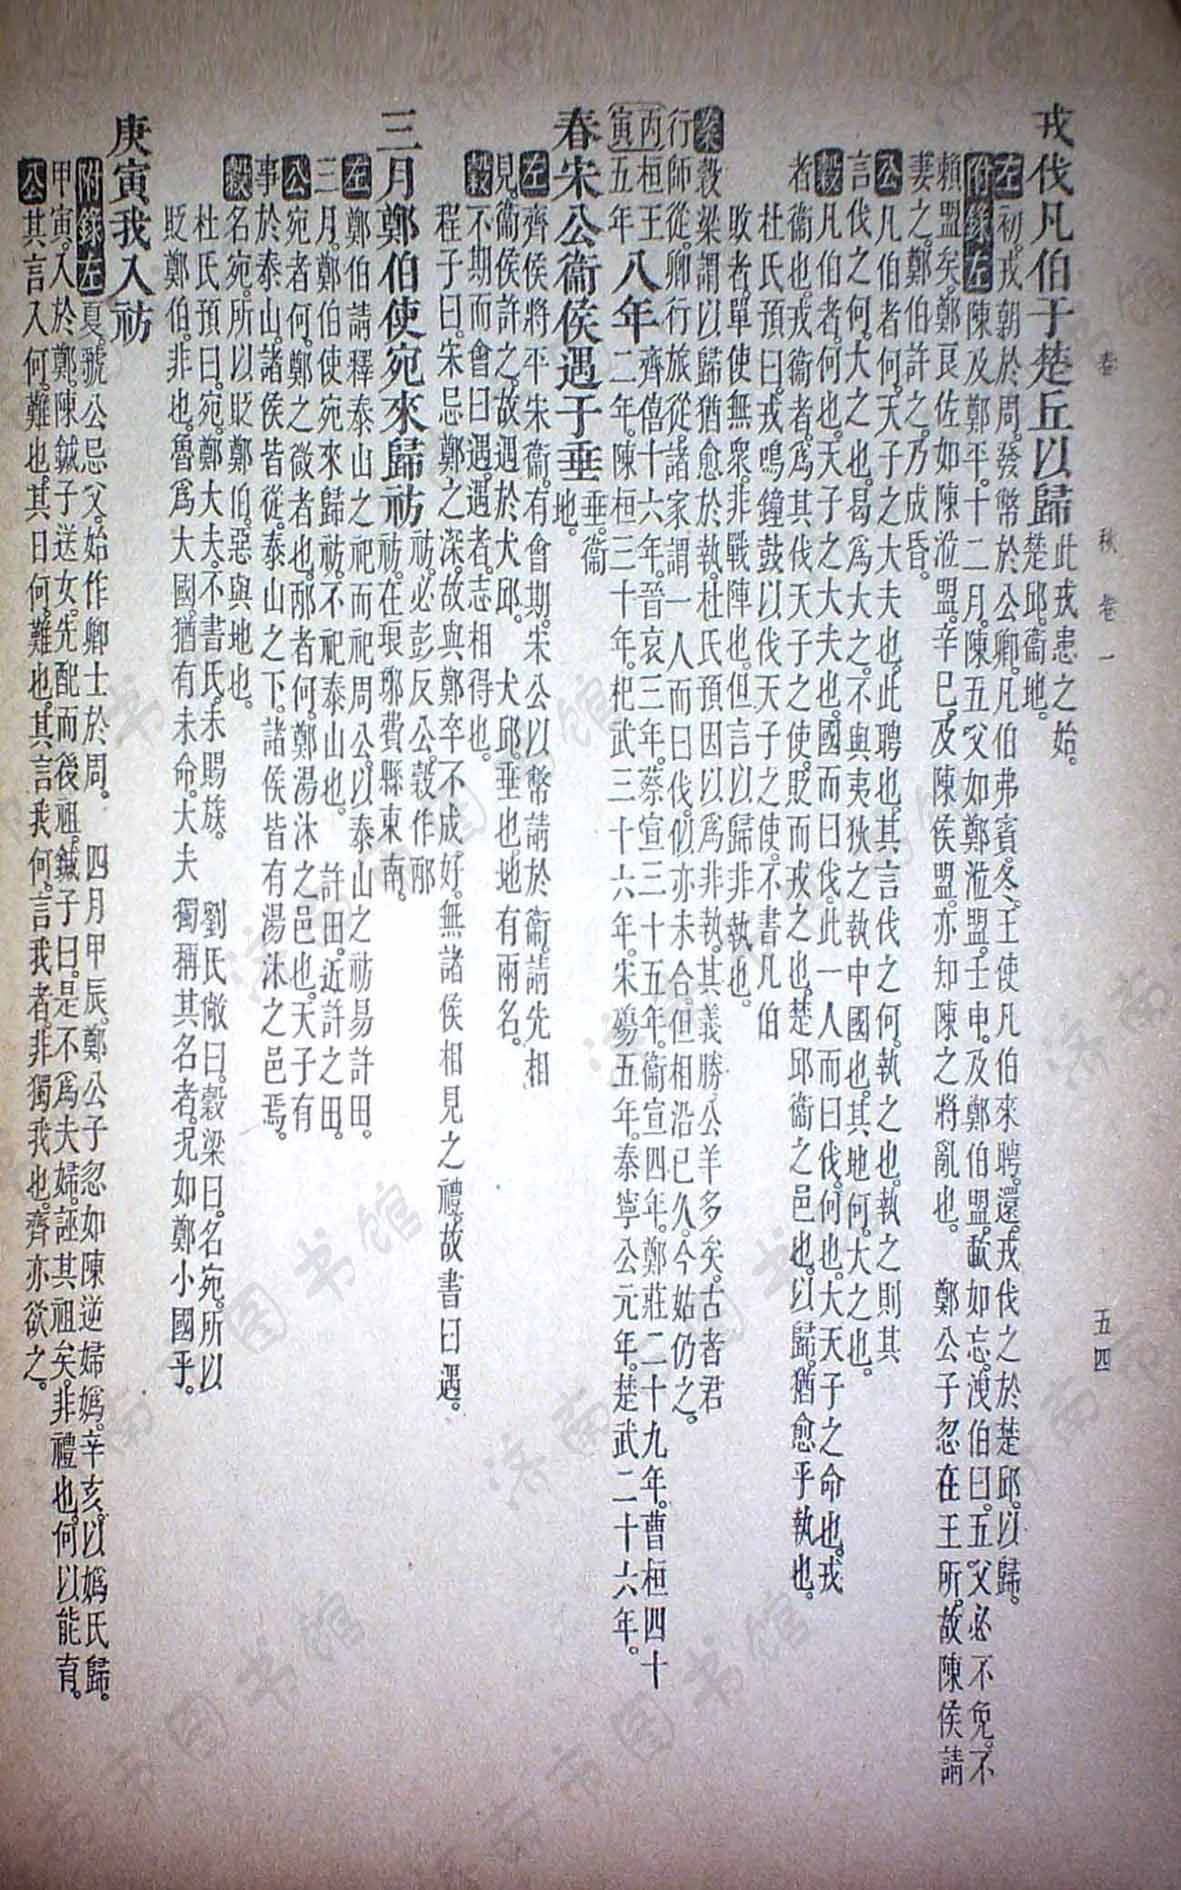 春 秋 卷一 五四
戎伐凡伯于楚丘以歸 此戎患之始。
楚邱。衞地。
左初。戎朝於周。發幣於公卿。凡伯弗賓。冬、王使凡伯來聘。還。戎伐之於楚邱。以歸。
附錄左陳及鄭平。十二月。陳五父如鄭涖盟。壬申。及鄭伯盟。歃如忘。洩伯曰。五父必不免。不
賴盟矣。鄭良佐如陳涖盟。辛巳。及陳侯盟。亦知陳之將亂也。 鄭公子忽在王所。故陳侯請
妻之。鄭伯許之。乃成昏。
公凡伯者何。天子之大夫也。此聘也。其言伐之何。執之也。執之則其
言伐之何。大之也。曷爲大之。不與夷狄之執中國也。其地何。大之也。
穀凡伯者。何也。天子之大夫也。國而曰伐。此一人而曰伐。何也。大天子之命也。戎
者衞也。戎衞者。爲其伐天子之使。貶而戎之也。楚邱衞之邑也。以歸。猶愈乎執也。
杜氏預曰。戎鳴鐘鼓以伐天子之使。不書凡伯
敗者。單使無衆。非戰陣也。但言以歸。非執也。
案穀梁謂以歸猶愈於執。杜氏預因以爲非執。其義勝公羊多矣。古者君
行師從。卿行旅從。諸家謂一人而曰伐。似亦未合。但相沿已久。今姑仍之。
丙寅 桓王五年 八年 齊僖十六年。晉哀三年。蔡宣三十五年。衞宣四年。鄭莊二十九年。曹桓四十
二年。陳桓三十年。杞武三十六年。宋殤五年。秦寧公元年。楚武二十六年。
春宋公衞侯遇于垂 垂。衞
地。
左齊侯將平宋衞。有會期。宋公以幣請於衞。請先相
見。衞侯許之。故遇於犬邱。 犬邱。垂也。地有兩名。
穀不期而會曰遇。遇者。志相得也。
程子曰。宋忌鄭之深。故與鄭卒不成好。無諸侯相見之禮。故書曰遇。
三月鄭伯使宛來歸祊 祊。必彭反。公。穀作邴
祊。在琅邪費縣東南。
左鄭伯請釋泰山之祀而祀周公。以泰山之祊易許田。
三月。鄭伯使宛來歸祊。不祀泰山也。 許田。近許之田。
公宛者何。鄭之微者也。邴者何。鄭湯沐之邑也。天子有
事於泰山。諸侯皆從。泰山之下。諸侯皆有湯沐之邑焉。
穀名宛。所以貶鄭伯。惡與地也。
杜氏預曰。宛。鄭大夫。不書氏。未賜族。 劉氏敞曰。穀梁曰。名宛。所以
貶鄭伯。非也。魯爲大國猶有未命。大夫獨稱其名者。況如鄭小國乎。
庚寅我入祊
附錄左夏。虢公忌父。始作卿士於周。 四月甲辰。鄭公子忽如陳逆婦嬀。辛亥。以嬀氏歸。
甲寅。入於鄭。陳鍼子送女。先配而後祖。鍼子曰。是不爲夫婦。誣其祖矣。非禮也。何以能育。
公其言入何。難也。其日何。難也。其言我何。言我者。非獨我也。齊亦欲之。